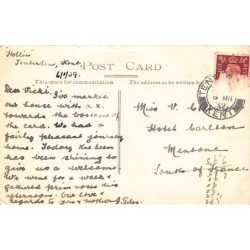 "Hollin"
Tenterden, Kent.
6/1/39.
POST CARD
This space for communication.
The address to be written
Dear Vicki, I've marked
our house with a x.
towards the bottom of
the card. We had a
fairly pleasant journey
home. Today the sun
has been shining to
give us a welcome
We went for a walk &
gathered primroses this
afternoon. but love &
regards to you & mother J.
Miss V. C
Hotel Carlton
Mentone
South of France
TEN
KENT